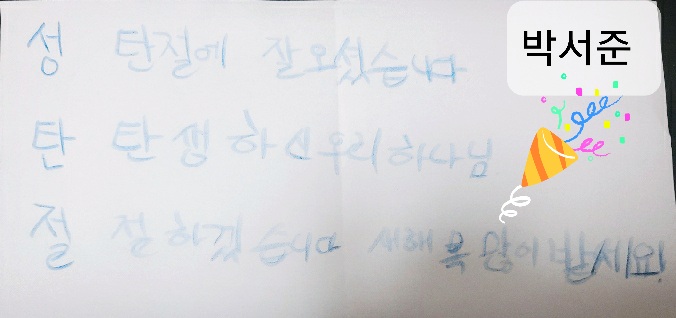 박서준
성 탄절에 잘오셨습니다
탄 탄생하신우리하나님
절 절하겠습니다 새해복많이받세요!